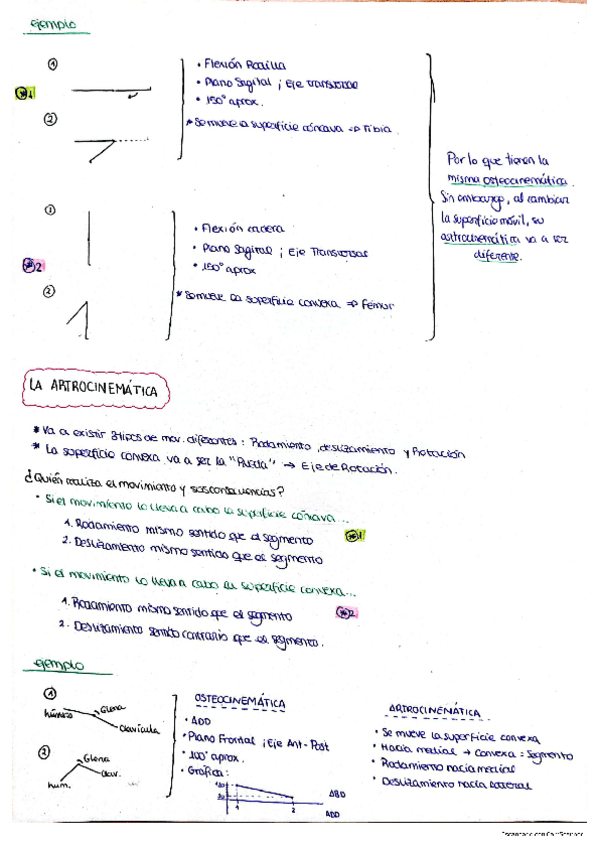 ejemplo
1
• Flexión Rodilla
• Plano Sagital ; Eje transverso
• 150° aprox.
*1
2
* Se mueve la superficie cóncava => Tibia.
Por lo que tienen la
misma osteocinemática.
Sin embargo, al cambiar
la superficie móvil, su
artrocinemática va a ser
diferente.
1
• Flexión cadera
• Plano Sagital ; Eje Transverso
• 150° aprox
*2
2
* Se mueve la superficie convexa => Femur
LA ARTROCINEMÁTICA
* Va a existir 3 tipos de mov. diferentes: Rodamiento, deslizamiento y Rotación
* La superficie convexa va a ser la "Rueda" → Eje de Rotación.
¿Quién realiza el movimiento y sus consecuencias?
• Si el movimiento lo lleva a cabo la superficie cóncava...
1. Rodamiento mismo sentido que el segmento *1
2. Deslizamiento mismo sentido que el segmento
• Si el movimiento lo lleva a cabo la superficie convexa...
1. Rodamiento mismo sentido que el segmento *2
2. Deslizamiento sentido contrario que el segmento.
ejemplo
1
húmero
Glena
clavícula
2
Glena
clav.
hum.
OSTEOCINEMÁTICA
• ADD
• Plano Frontal ; Eje Ant-Post
• 100° aprox.
• Gráfica:
1
2
ABD
ADD
ARTROCINEMÁTICA
• Se mueve la superficie convexa
• Hacia medial → Convexa = Segmento
• Rodamiento hacia medial
• Deslizamiento hacia lateral
Escaneado con CamScanner